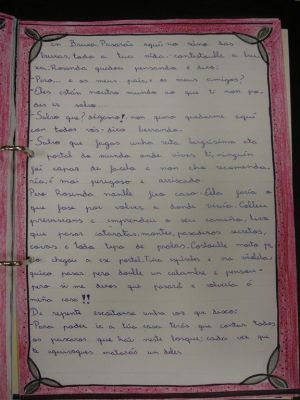 en Bruxa. Pasarás aquí no reino das
bruxas, toda a túa vida - contestoulle a bru
xa. Rosanda quedou pensando e dixo:
- Pero... e os meus pais, e os meus amigos?
- Eles están noutro mundo ao que ti non po-
des ir salvo...
- Salvo que? dígame!, non quero quedarme aquí
con todos vós - dixo berrando.
- Salvo que fagas unha ruta longísima ata
o portal do mundo onde vives ti, ninguén
foi capaz de facela e non cha recomenda
ría, é moi perigoso e arriscado
Pero Rosanda nanle fixo caso. Ela faría o
que fose por volver a onde vivía. Colleu
e emprendeu o seu camiño, tivo
que pasar cataratas, montes, pasadizos secretos,
covas e toda tipo de probas. Custoulle moito pe
ro chegou a ese portal. Tiña
quixo pasar pero doulle un calambre e pensou -
pero si me dixo que pasaría e volvería á
miña casa!!
De repente escoitouse unha voz que dixo:
- Para poder ir a túa casa terás que contar todos
os paxaros que hai neste bosque; cada vez que
te equivoques matarás un deles